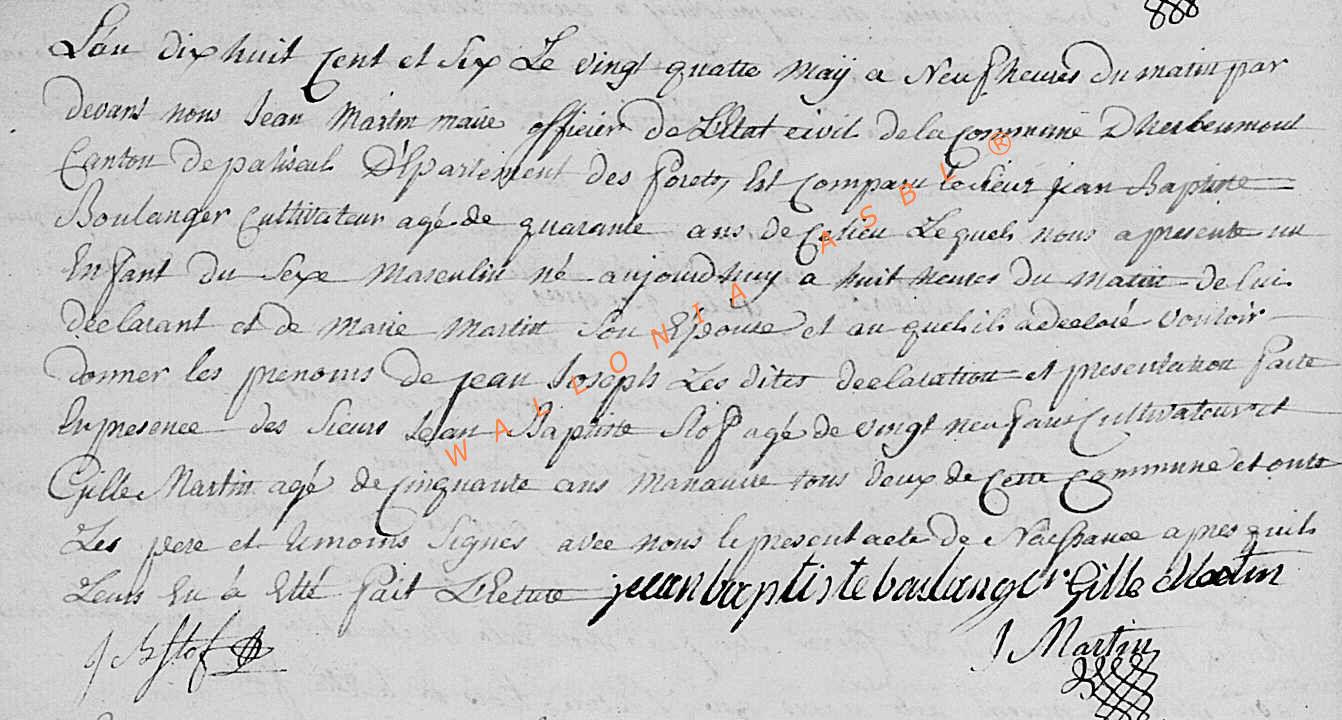 L'an dix huit Cent et Six Le vingt quatre Maÿ a Neuf heures du matin par
devant nous Jean Martin maire officier de L'Etat civil de la Commune D'herbeumont
Canton de paliseul Département des forets, Est Comparu le sieur jean Baptiste
Boulanger Cultivateur agé de quarante ans de Ce lieu Lequels nous a presenté un
Enfant du Sexe Masculin né aujourdhuy a huit heures du matin de lui
declarant et de Marie Martin Son Epouse et au quels il a declaré vouloir
donner les prenoms de jean Joseph Les dites declaration et presentation faite
En presence des Sieurs Jean Baptiste Stof agé de vingt neuf ans Cultivateur et
Gille Martin agé de Cinquante ans Manauvre tous deux de Cette Commune et onts
Les pere et temoins Signes avec nous le present acte de Naissance apres quils
Leurs En à Etté fait Lecture jean baptiste boulanger Gille Martin
J B Stof J Martin
WALLONIA ASBL ®